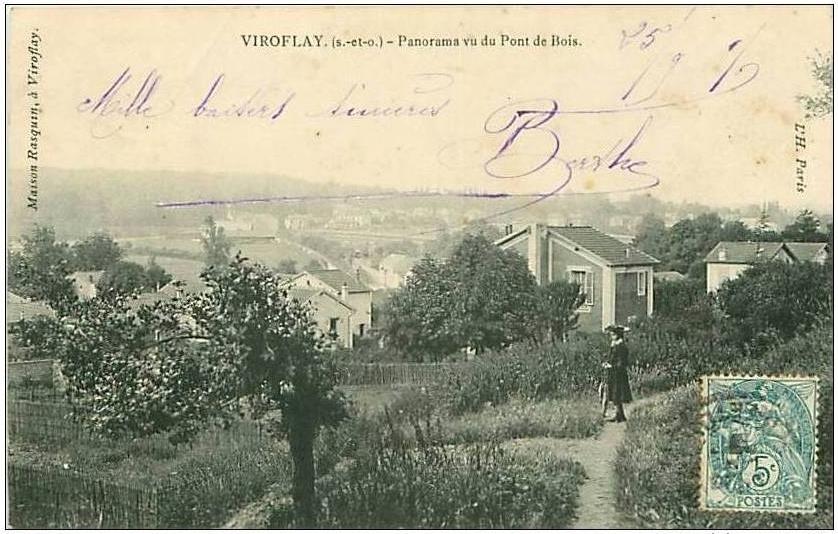 VIROFLAY. (s.-et-o.) - Panorama vu du Pont de Bois.
Maison Rasquin, à Viroflay.
L'H. Paris
Mille baisers sincères
Berthe
5c
POSTES